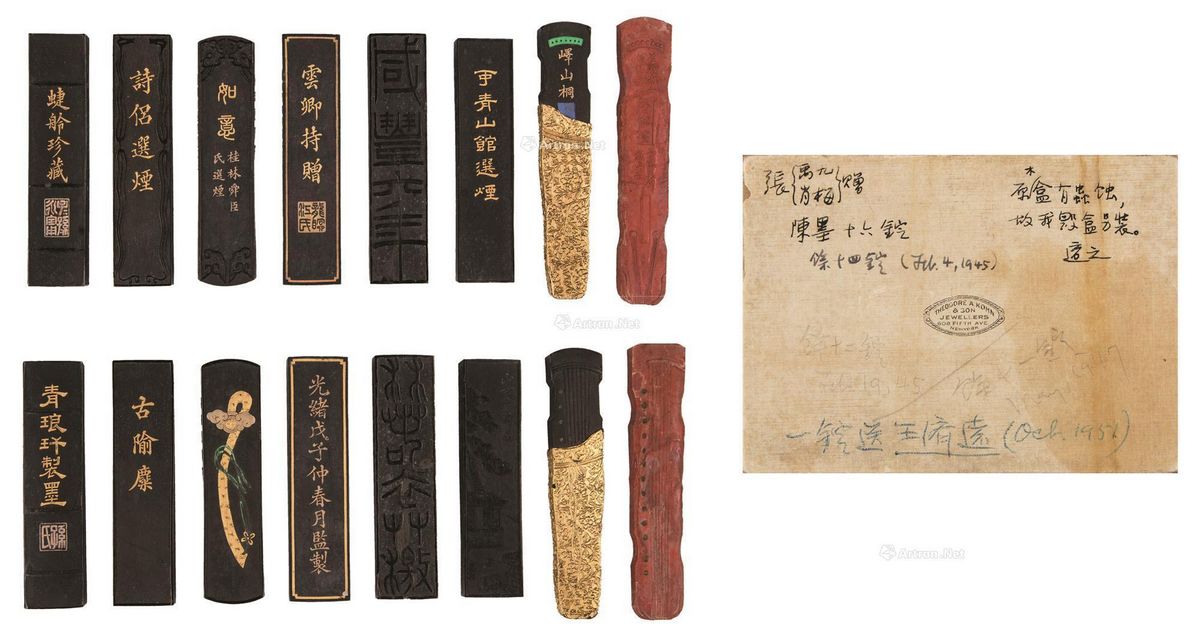 蜨舲珍藏
詩侶選煙
如意
桂林舜臣
氏選煙
雲卿持贈
咸豐六年
青山館選煙
嶧山桐
青琅玕製墨
孫氏
古隃麋
光緒戊子仲春月監製
張{禹九 肖梅}贈
陳墨十六錠
餘十四錠 (Feb. 4, 1945)
木
原盒有蟲蝕,
故我毀盒另裝。
適之
THEODORE A. KOHN
& SON
JEWELLERS
608 FIFTH AVE
NEW YORK
餘十二錠
Feb. 19, 45
一錠送王濟遠 (Oct. 1951)
Artron.Net
Artron.Net
Artron.Net
Artron.Net